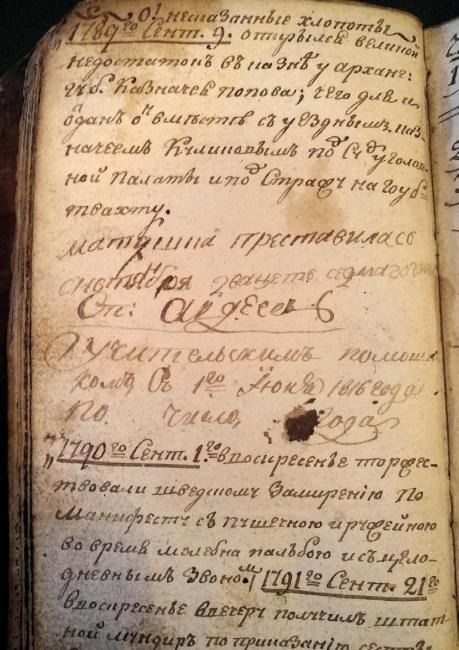 О! несказанные хлопоты
"1789го Сент. 9. открылся великой
недостаток въ казнѣ у арханг:
губ. Казначея попова; чего для и
отданъ онъ вмѣстѣ съ уѣзднымъ каз-
начеемъ Куликовымъ подъ Судъ уголов-
ной палаты и подъ Стражу на гоубъ-
твахту.
матушка преставилась
сентября двацеть седмаго
От:
Учительскимъ помощни
комъ, Съ 1го Июня 1816 года
По. число, года
"1790го Сент. 1.го в воскресенье торжес-
твовали шведскому Замирению По
Манифесту съ пушечною и ружейною
во время молебна пальбою и съ цѣло-
дневнымъ Звономъ. 1791го Сент. 21го
в воскресенье ввечеру получилъ штат-
ной мундиръ по приказанію